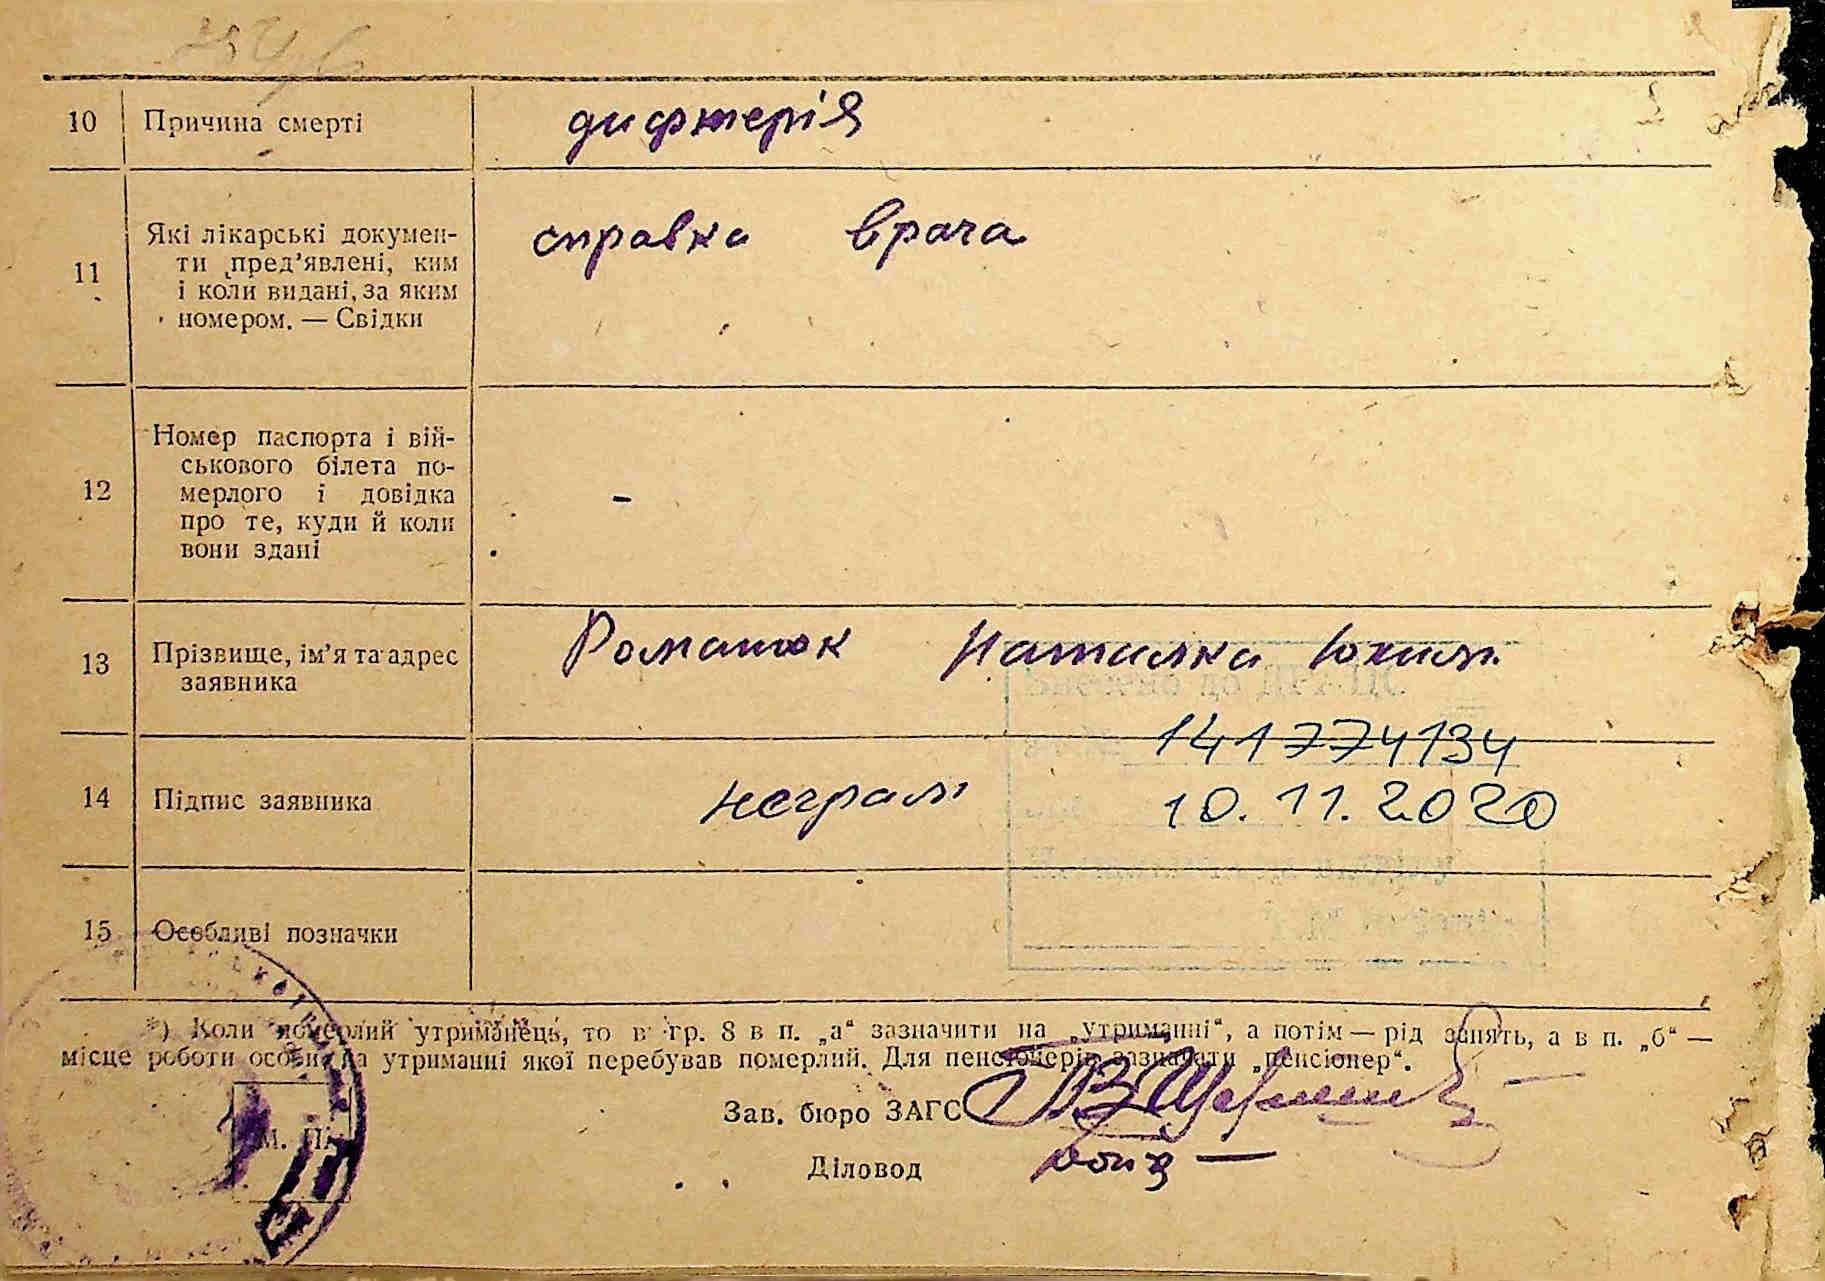 10 Причина смерті дифтерія
11 Які лікарські докумен-
ти пред’явлені, ким
і коли видані, за яким
номером. — Свідки
справка врача
12 Номер паспорта і вій-
ськового білета по-
мерлого і довідка
про те, куди й коли
вони здані
-
13 Прізвище, ім’я та адрес
заявника
Романюк Наталка Юхим.
141774134
14 Підпис заявника неграм
10.11.2020
15 Особливі позначки
*) Коли померлий утриманець, то в гр. 8 в п. „а“ зазначити на „утриманні“, а потім — рід занять, а в п. „б“ —
місце роботи особи, на утриманні якої перебував померлий. Для пенсіонерів зазначати „пенсіонер“.
Зав. бюро ЗАГС
Діловод
М. П.